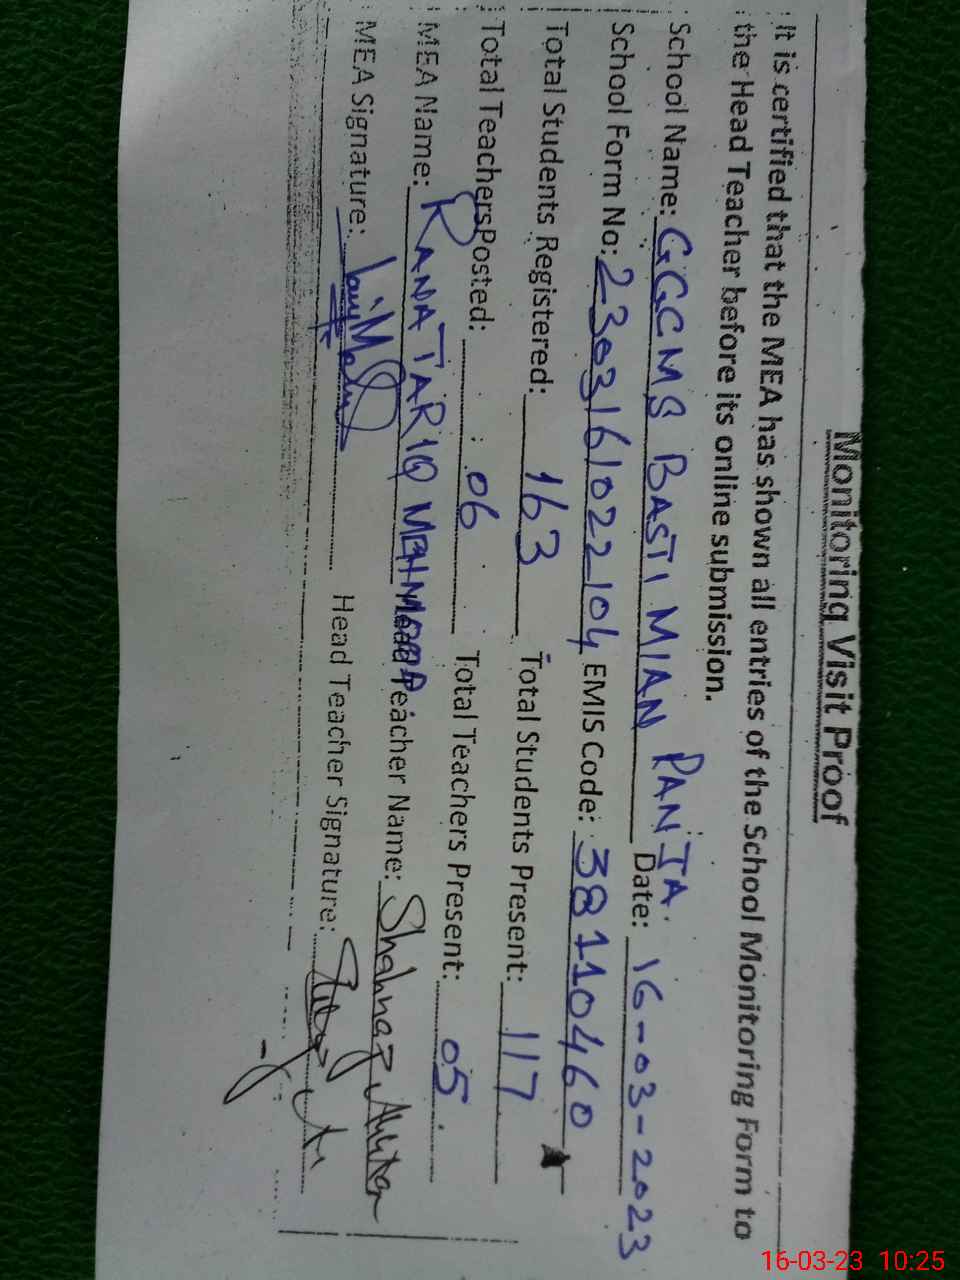 Monitoring Visit Proof
It is certified that the MEA has shown all entries of the School Monitoring Form to
the Head Teacher before its online submission.
School Name: GGCMS BASTI MIAN PANJA. Date: 16-03-2023
School Form No: 2303161022104 EMIS Code: 38110460
Total Students Registered: 163 Total Students Present: 117
Total Teachers Posted: 06 Total Teachers Present: 05
MEA Name: RANA TARIQ MEHMOOD Head Teacher Name: Shahnaz Akhter
MEA Signature: Head Teacher Signature:
16-03-23 10:25